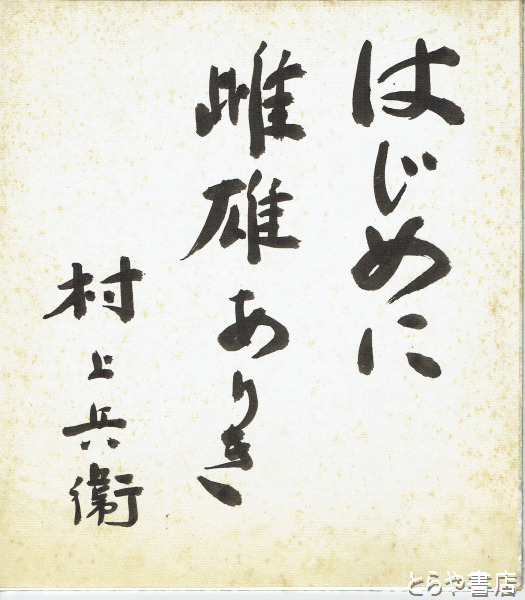 はじめに
雌雄ありき
村上兵衛
とらや書店